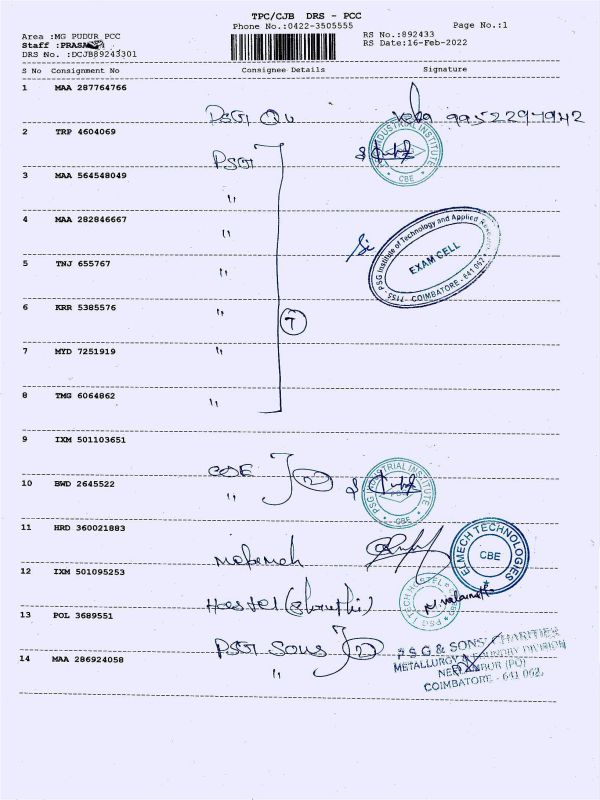 TPC/CJB DRS - PCC
Phone No.:0422-3505555
Page No.:1
Area :MG PUDUR PCC
RS No.:892433
Staff :PRASA
RS Date:16-Feb-2022
DRS No. :DCJB89243301
S No Consignment No Consignee Details Signature
1 MAA 287764766
PSG
2 TRP 4604069
PSG
INDUSTRIAL INSTITUTE
CBE
3 MAA 564548049
"
4 MAA 282846667
"
PSG Institute of Technology and Applied Research
EXAM CELL
COIMBATORE - 641 062
5 TNJ 655767
"
6 KRR 5385576
"
7
7 MYD 7251919
"
8 TMG 6064862
"
9 IXM 501103651
COE
2
10 BWD 2645522
"
PSG INDUSTRIAL INSTITUTE
CBE
11 HRD 360021883
ELMECH TECHNOLOGIES
CBE
12 IXM 501095253
Hostel
PSG iTECH HOSTEL
13 POL 3689551
PSG Sons
2
14 MAA 286924058
"
P S G & SONS' CHARITIES
METALLURGY & FOUNDRY DIVISION
NEELAMBUR (PO)
COIMBATORE - 641 062.